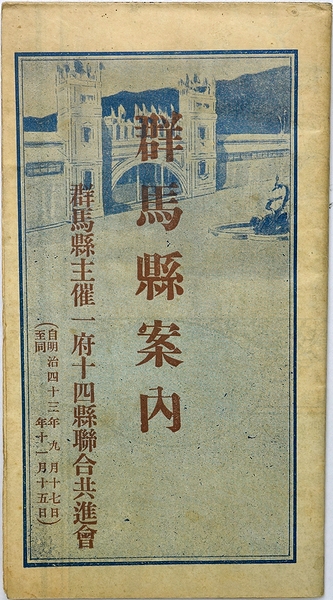 群馬縣案内
群馬縣主催一府十四縣聯合共進會
(自明治四十三年九月十七日
至同年十一月十五日)